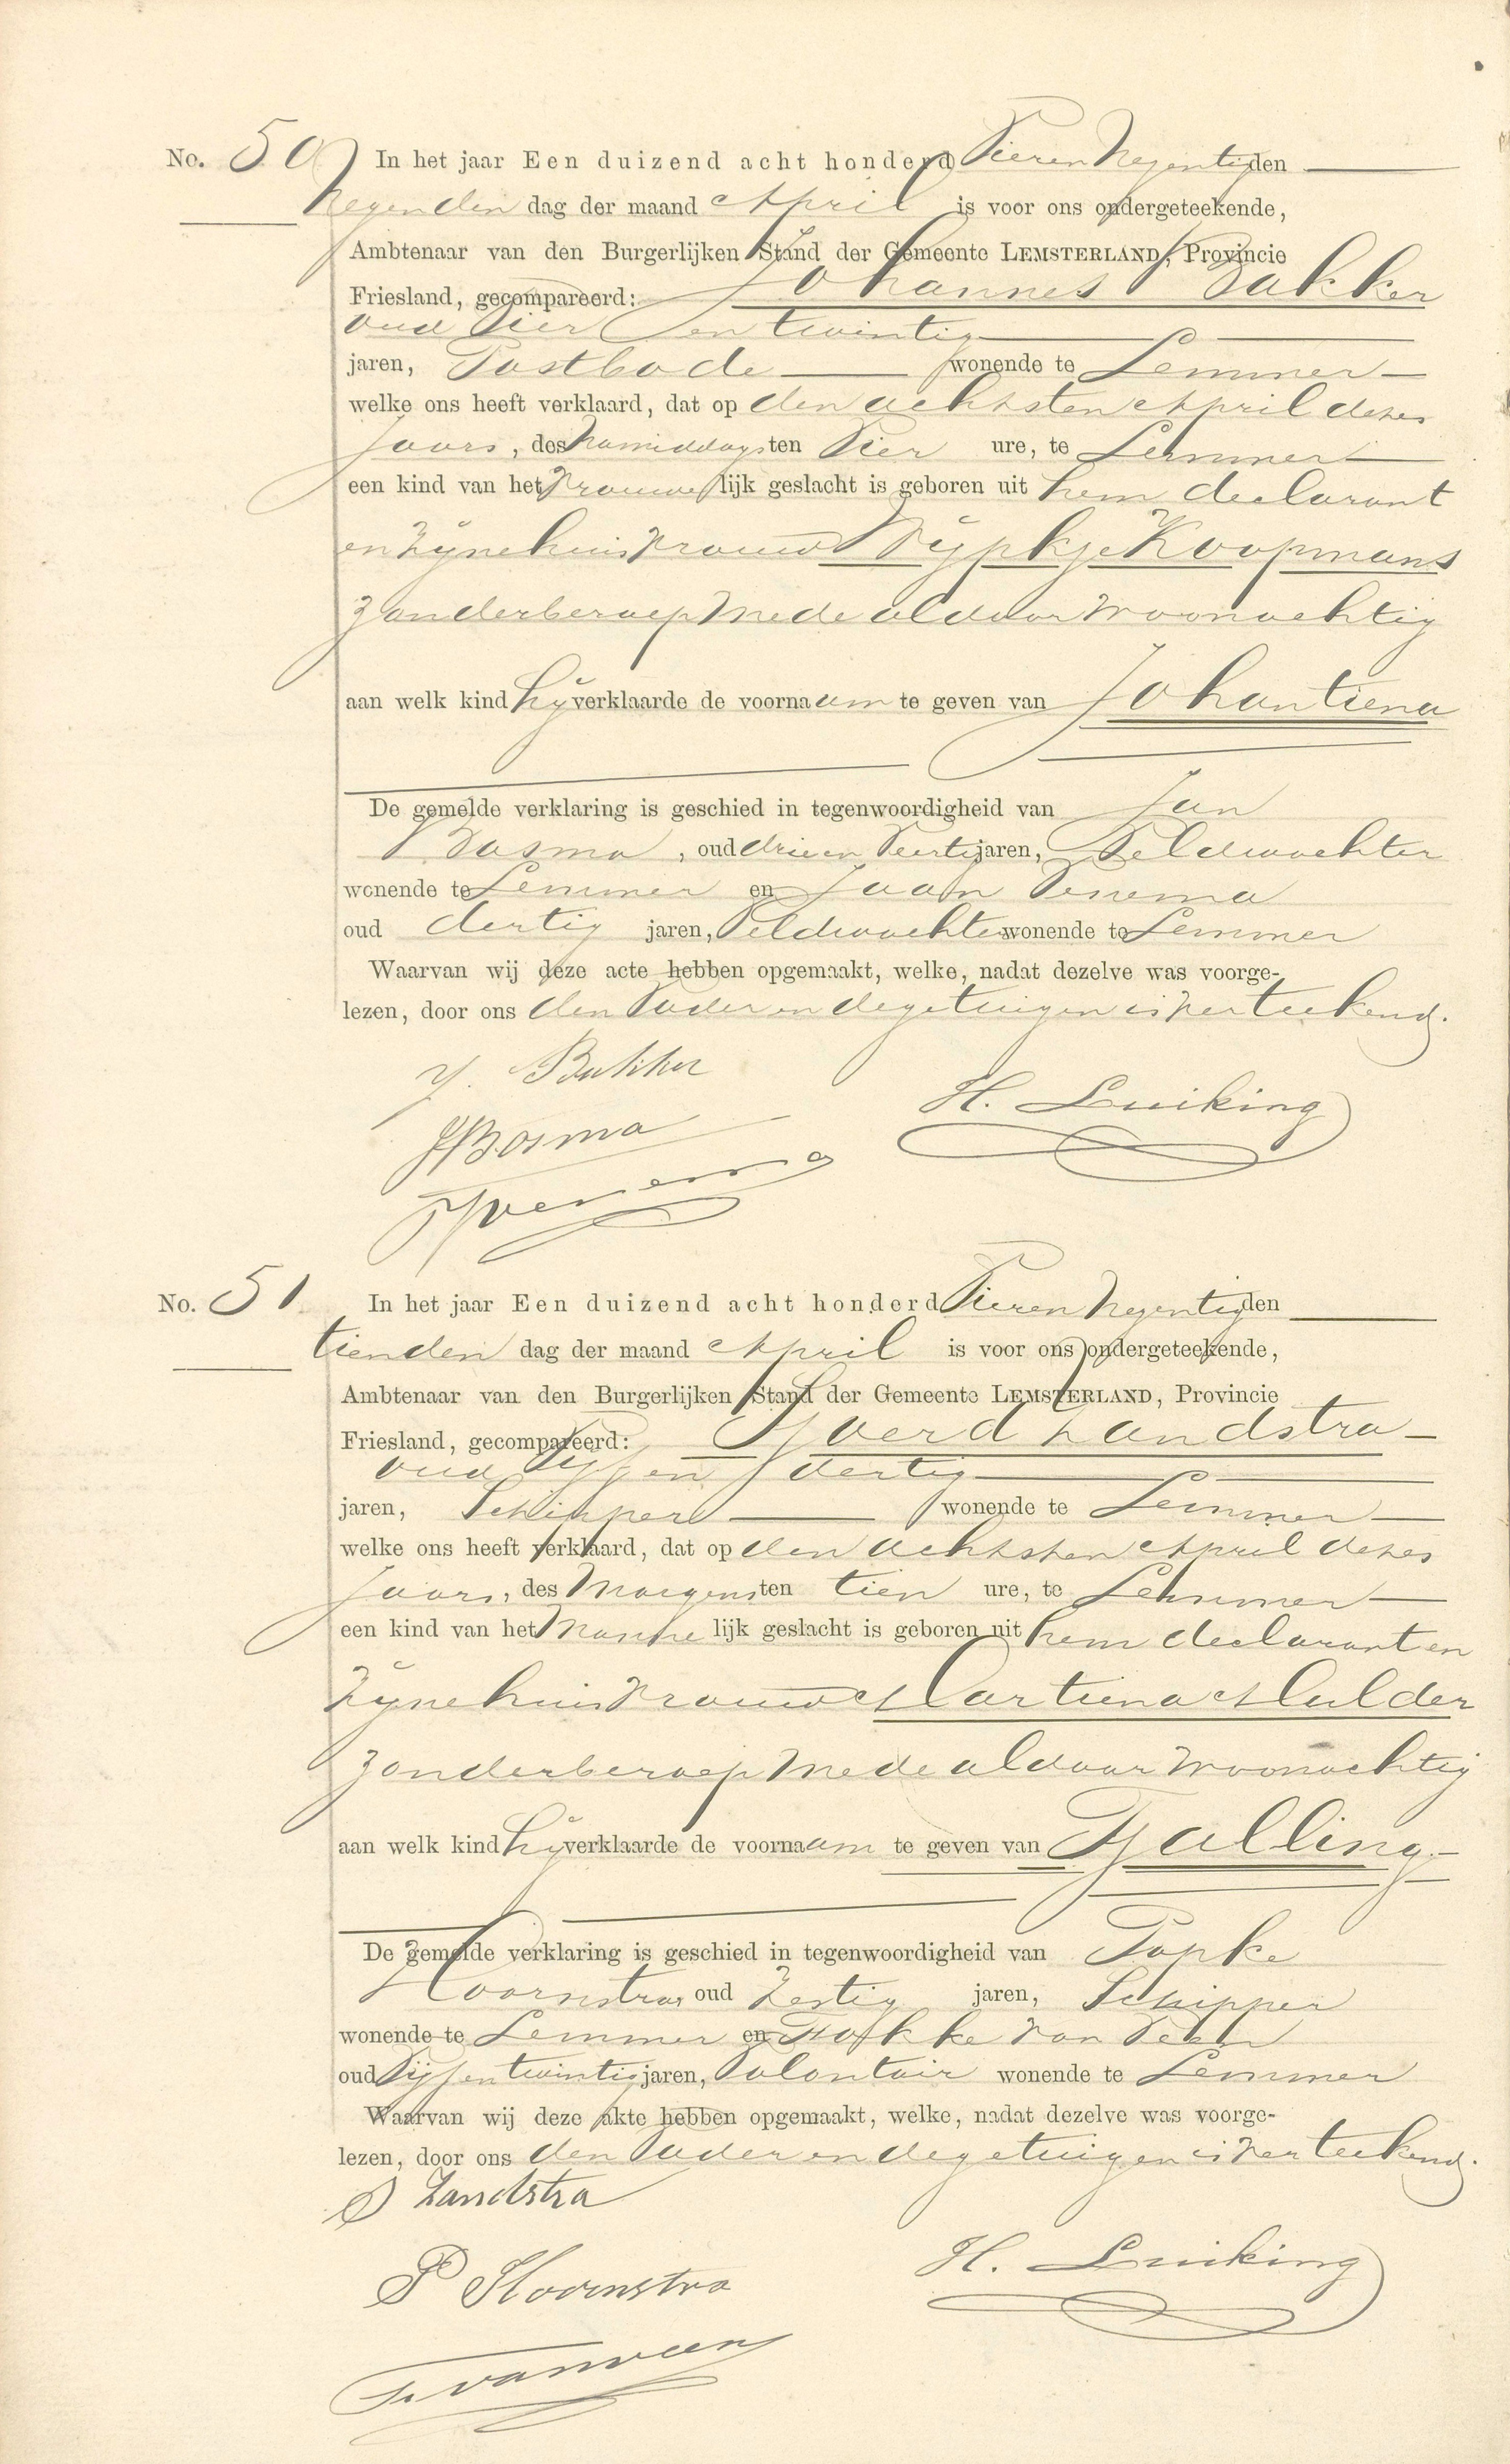 No. 50 In het jaar Een duizend acht honderd Vier en Negentig den
Negenden dag der maand April is voor ons ondergeteekende,
Ambtenaar van den Burgerlijken Stand der Gemeente LEMSTERLAND, Provincie
Friesland, gecompareerd: Johannes Bakker
oud Vier en twintig
jaren, Postbode wonende te Lemmer
welke ons heeft verklaard, dat op den achtsten April dezes
Jaars, des Namiddags ten Vier ure, te Lemmer
een kind van het Vrouwelijk geslacht is geboren uit hem declarant
en Zijne huisvrouw Sijpkje Koopmans
zonder beroep mede aldaar woonachtig
aan welk kind hij verklaarde de voornaam te geven van Johantiena
De gemelde verklaring is geschied in tegenwoordigheid van Jan
Bosma, oud drie en Veertig jaren, Veldwachter
wonende te Lemmer en Jaan Venema
oud dertig jaren, Veldwachter wonende te Lemmer
Waarvan wij deze acte hebben opgemaakt, welke, nadat dezelve was voorge-
lezen, door ons den Vader en de getuigen is verteekend.
J. Bakker
H. Luiking
J Bosma
J Venema
No. 51 In het jaar Een duizend acht honderd Vier en Negentig den
tienden dag der maand April is voor ons ondergeteekende,
Ambtenaar van den Burgerlijken Stand der Gemeente LEMSTERLAND, Provincie
Friesland, gecompareerd: Sjoerd Zandstra
oud Vijf en dertig
jaren, Schipper wonende te Lemmer
welke ons heeft verklaard, dat op den achtsten April dezes
Jaars, des Morgens ten tien ure, te Lemmer
een kind van het Mannelijk geslacht is geboren uit hem declarant en
Zijne huisvrouw Martiena Mulder
zonder beroep mede aldaar woonachtig
aan welk kind hij verklaarde de voornaam te geven van Tjalling
De gemelde verklaring is geschied in tegenwoordigheid van Popke
Hoornstra, oud Zestig jaren, Schipper
wonende te Lemmer en Fokke van Veen
oud Vijf en twintig jaren, Volontair wonende te Lemmer
Waarvan wij deze akte hebben opgemaakt, welke, nadat dezelve was voorge-
lezen, door ons den Vader en de getuigen is verteekend.
S Zandstra
H. Luiking
P Hoornstra
F. van veen